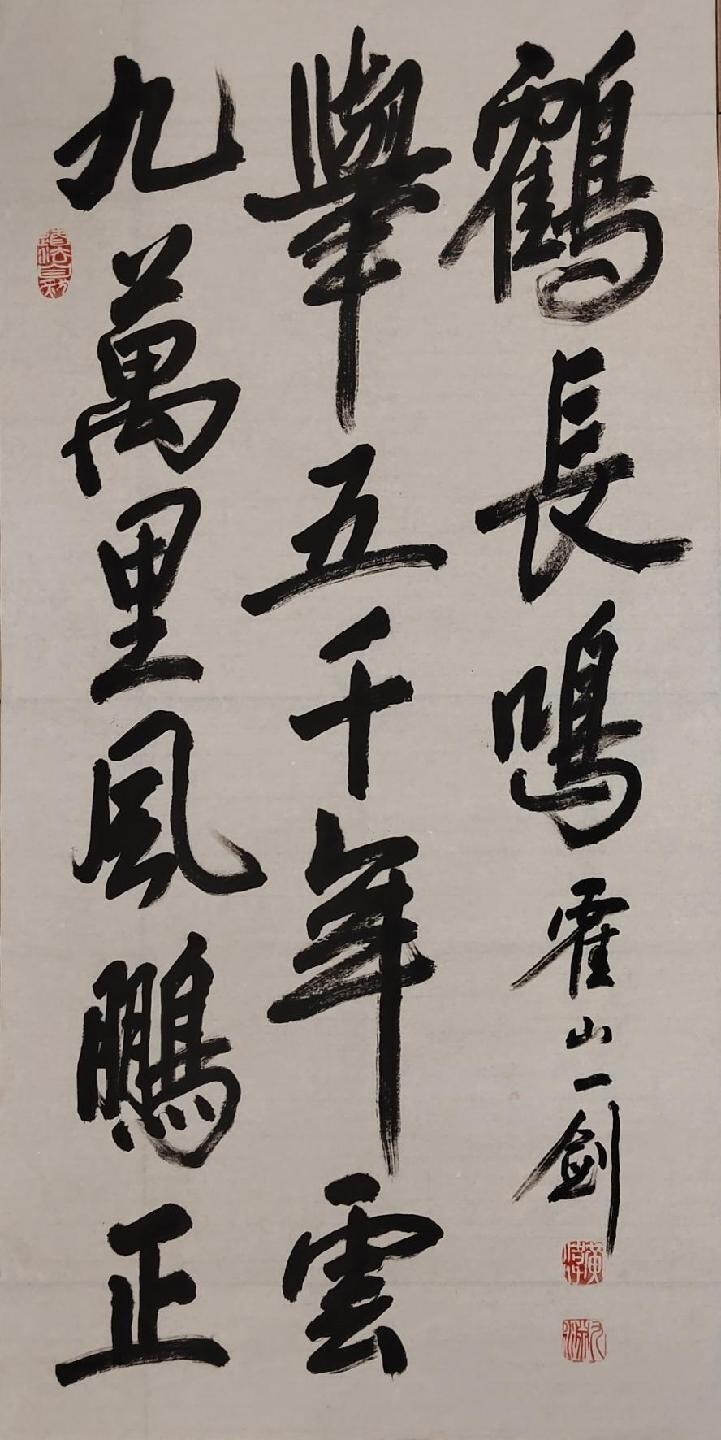 九萬里風鵬正
舉五千年雲
鶴長鳴
霍山一劍
道法自然